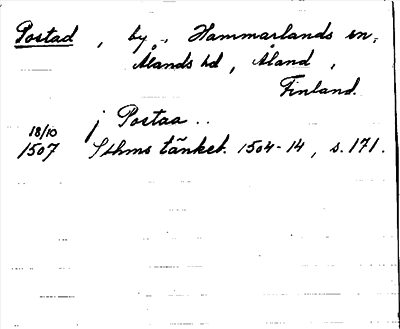 Postad, by, Hammarlands sn,
Ålands hd, Åland,
Finland.
j Postaa ..
18/10
1507 Sthms tänkeb. 1504-14, s. 171.